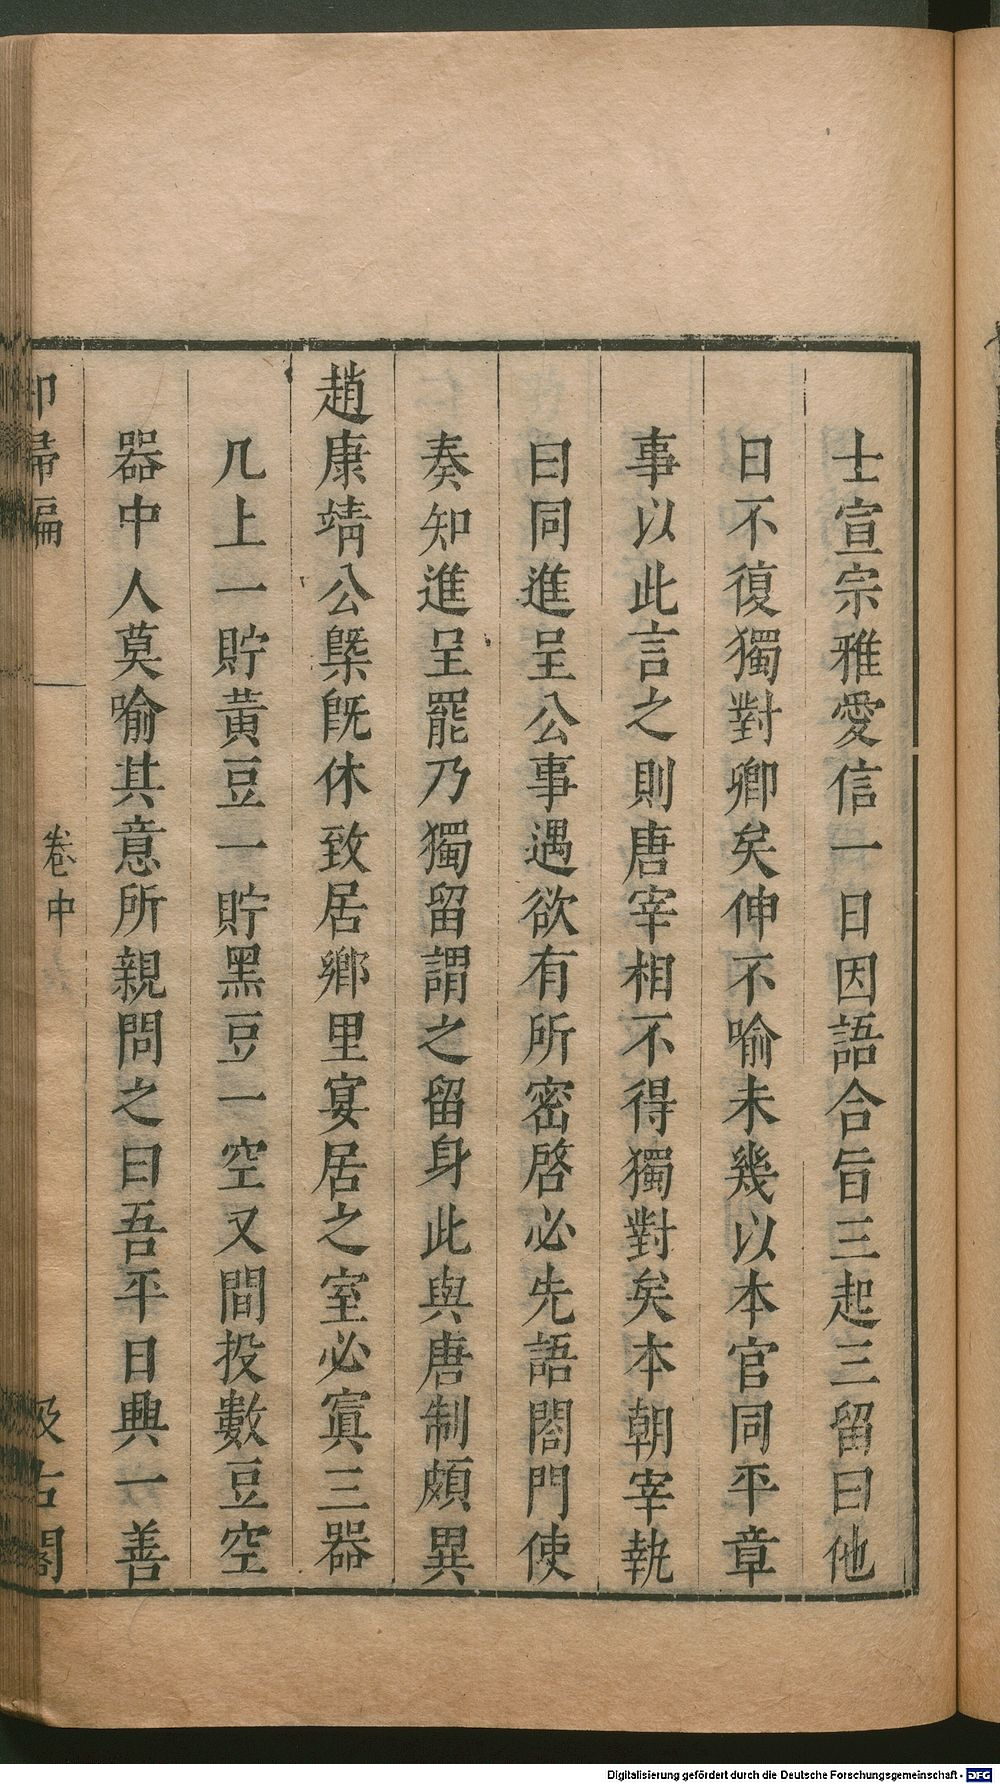 士宣宗雅愛信一日因語合旨三起三留曰他
日不復獨對卿矣伸不喻未幾以本官同平章
事以此言之則唐宰相不得獨對矣本朝宰執
曰同進呈公事遇欲有所密啓必先語閤門使
奏知進呈罷乃獨留謂之留身此與唐制頗異
趙康靖公槩旣休致居鄉里宴居之室必寘三器
几上一貯黄豆一貯黑豆一空又間投數豆空
器中人莫喻其意所親問之曰吾平日興一善
卻掃編
卷中
汲古閣
Digitalisierung gefördert durch die Deutsche Forschungsgemeinschaft - DFG